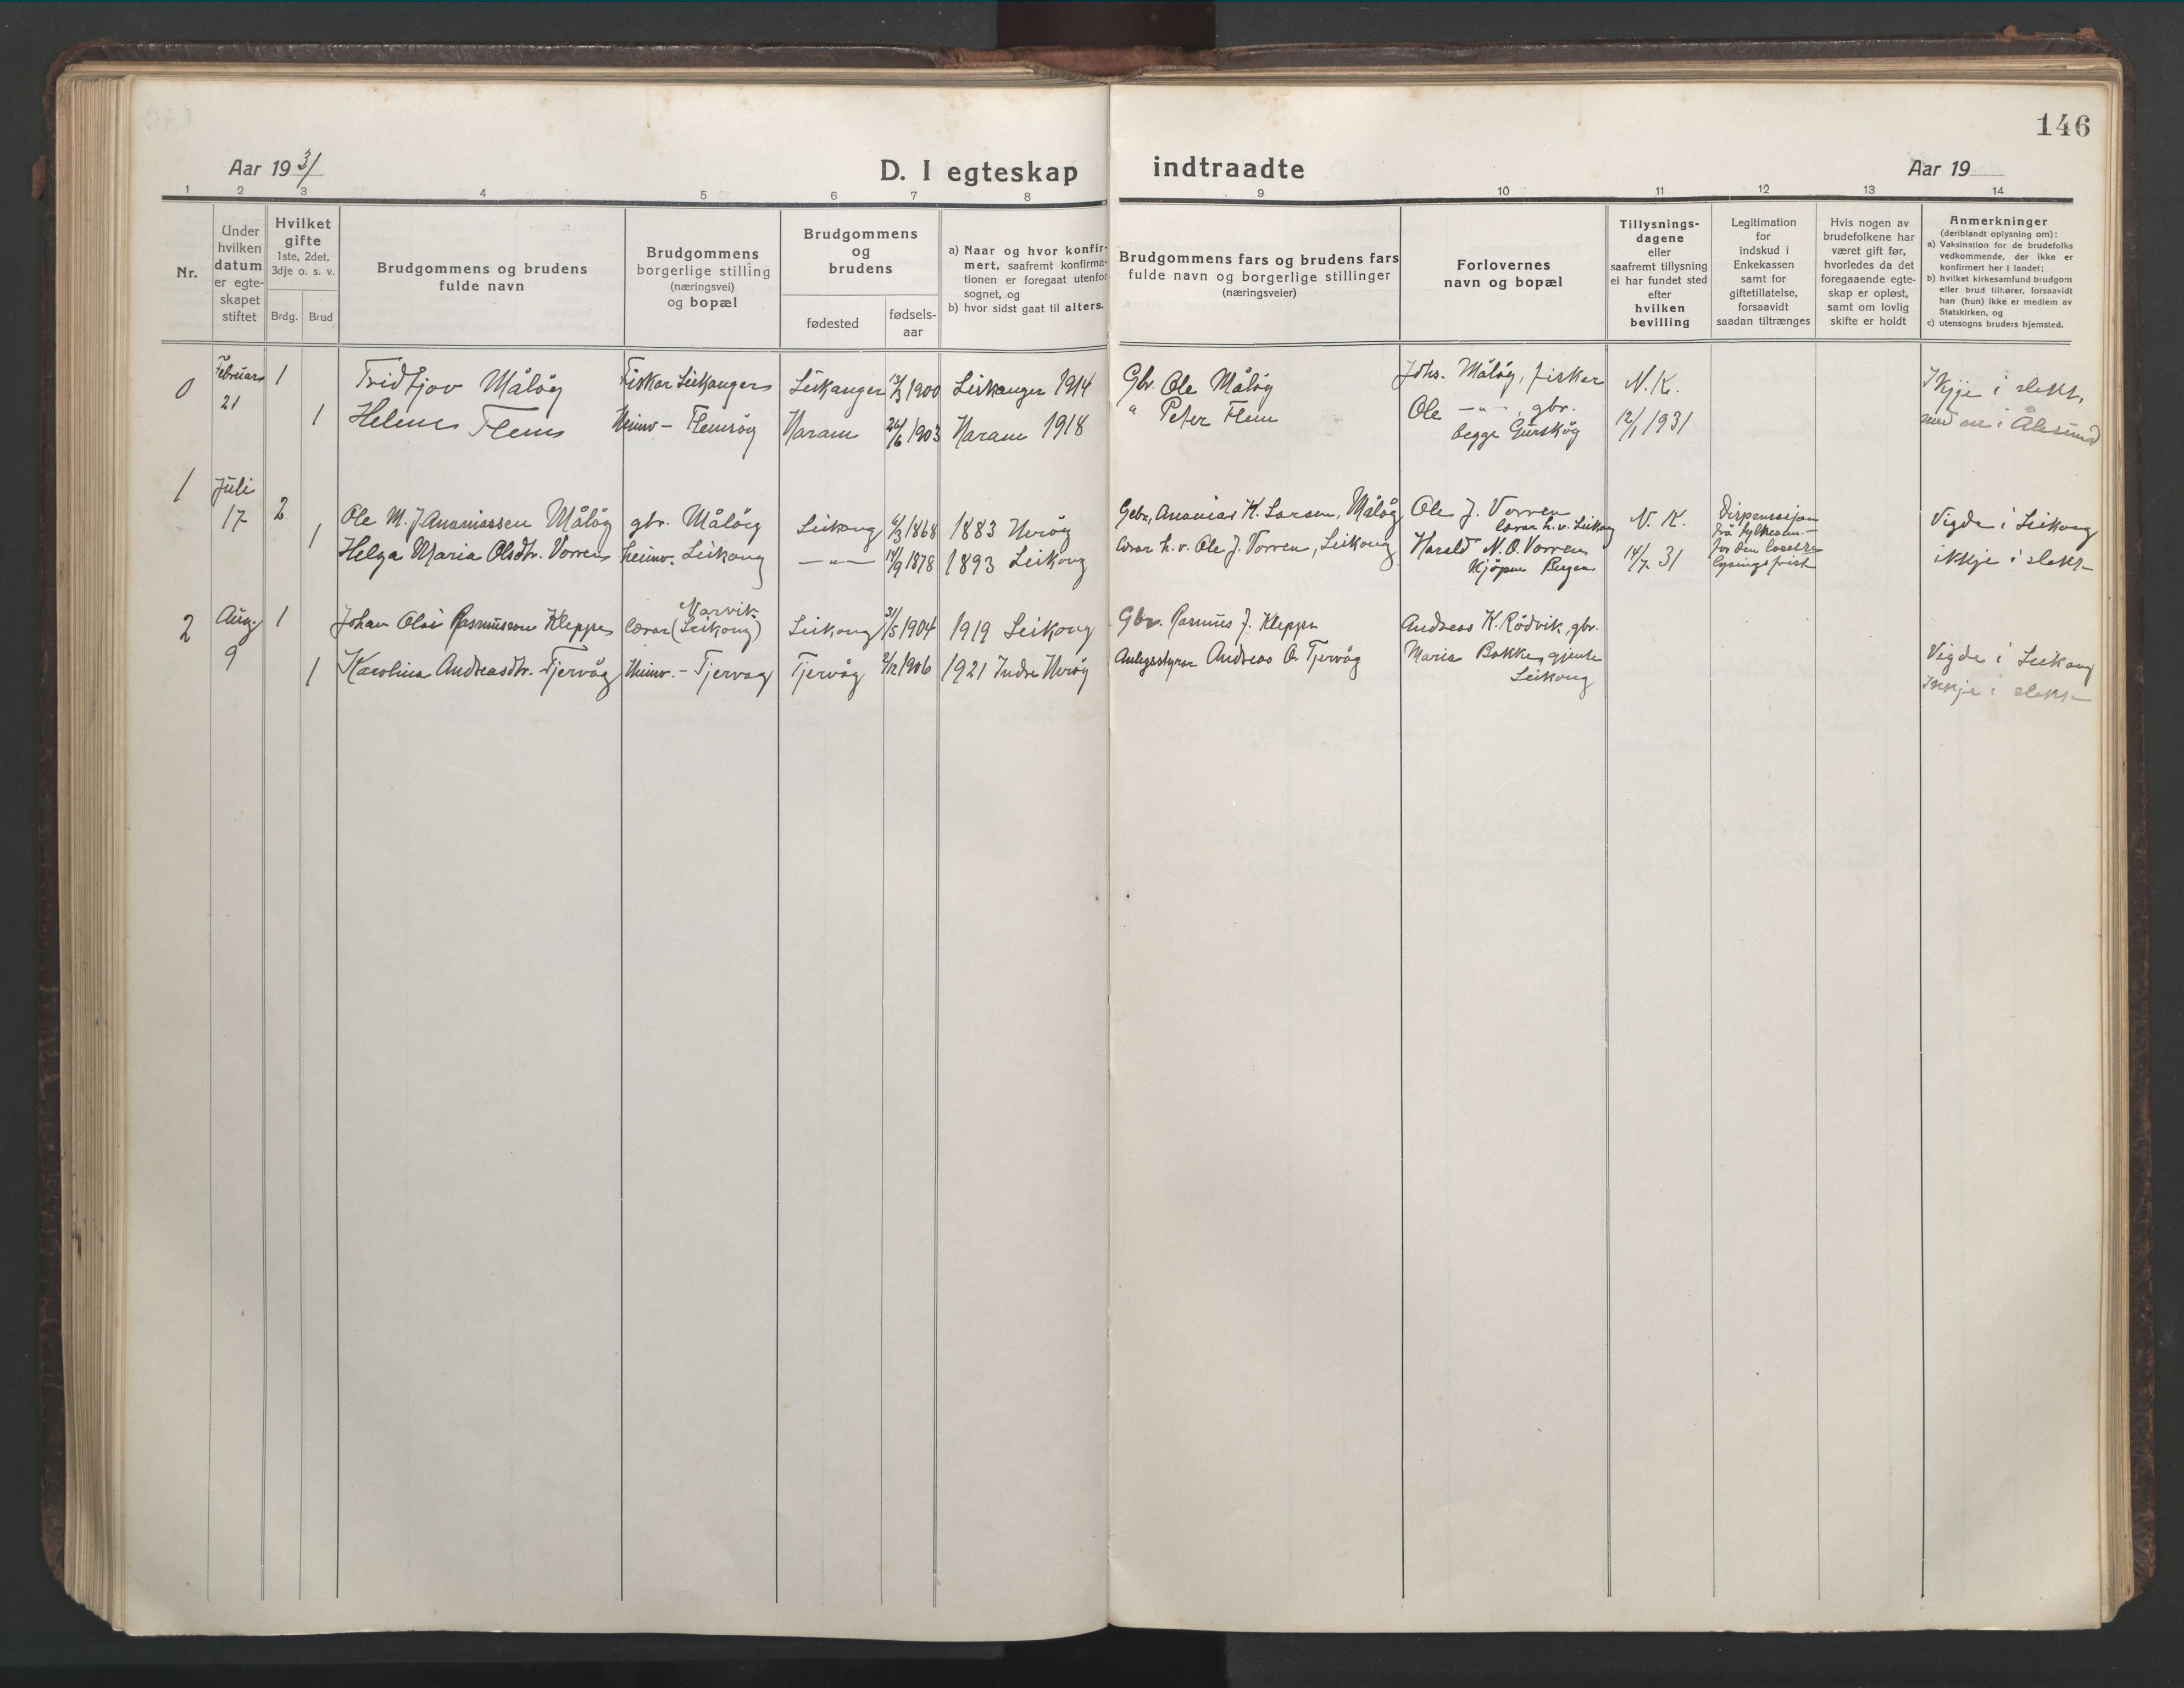 146
Aar 1931
D. I egteskap indtraadte
Aar 19
1 2 3 4 5 6 7 8 9 10 11 12 13 14
Nr.
Under
hvilken
datum
er egte-
skapet
stiftet
Hvilket
gifte
1ste, 2det,
3dje o. s. v.
Brdg. Brud
Brudgommens og brudens
fulde navn
Brudgommens
borgerlige stilling
(næringsvei)
og bopæl
Brudgommens
og
brudens
fødested
fødsels-
aar
a) Naar og hvor konfir-
mert, saafremt konfirma-
tionen er foregaat utenfor
sognet, og
b) hvor sidst gaat til alters.
Brudgommens fars og brudens fars
fulde navn og borgerlige stillinger
(næringsveier)
Forlovernes
navn og bopæl
Tillysnings-
dagene
eller
saafremt tillysning
ei har fundet sted
efter
hvilken
bevilling
Legitimation
for
indskud i
Enkekassen
samt for
giftetillatelse,
forsaavidt
saadan tiltrænges
Hvis nogen av
brudefolkene har
været gift før,
hvorledes da det
foregaaende egte-
skap er opløst,
samt om lovlig
skifte er holdt
Anmerkninger
(deriblandt oplysning om):
a) Vaksination for de brudefolks
vedkommende, der ikke er
konfirmert her i landet;
b) hvilket kirkesamfund brudgom
eller brud tilhører, forsaavidt
han (hun) ikke er medlem av
Statskirken, og
c) utensogns bruders hjemsted.
0
Februar
21
1
1
Fridtjov Måløy
Helene Flem
Fiskar Leikanger
Heimv - Flemsøy
Leikanger
Haram
12/3 1900
24/6 1903
Leikanger 1914
Haram 1918
Gbr. Ole Måløy
" Peter Flem
Johs. Måløy, fisker
Ole -"-, gbr.
begge Gurskøy
N. K.
12/1 1931
Ikkje i slekt,
i Ålesund
1
Juli
17
2
1
Ole M. J Ananiassen Måløy
Helga Maria Olsdtr. Vorren
gbr. Måløy
heimv. Leikong
Leikong
-"-
6/3 1868
14/9 1878
1883 Herøy
1893 Leikong
Gbr. Ananias K. Larsen, Måløy
Lærar h. v. Ole J. Vorren, Leikong
Ole J. Vorren
Lærar h. v. Leikong
Harald N. O. Vorren
Kjøpm Bergen
N. K.
14/7 31
Dispenssjon
frå fylkesm.
for den
lysingsfrist
Vigde i Leikong
ikkje i slekt
2
Aug.
9
1
1
Johan Olai Rasmusson Kleppe
Karolina Andreasdtr. Tjervåg
Narvik
Lærar (Leikong)
Heimv. - Tjervåg
Leikong
Tjervåg
31/5 1904
2/12 1906
1919 Leikong
1921 Indre Herøy
Gbr. Rasmus J. Kleppe
Anlegsstyrar Andreas O. Tjervåg
Andreas K. Rødvik, gbr.
Maria Bakke, gjente
Leikong
Vigde i Leikong
Ikkje i slekt